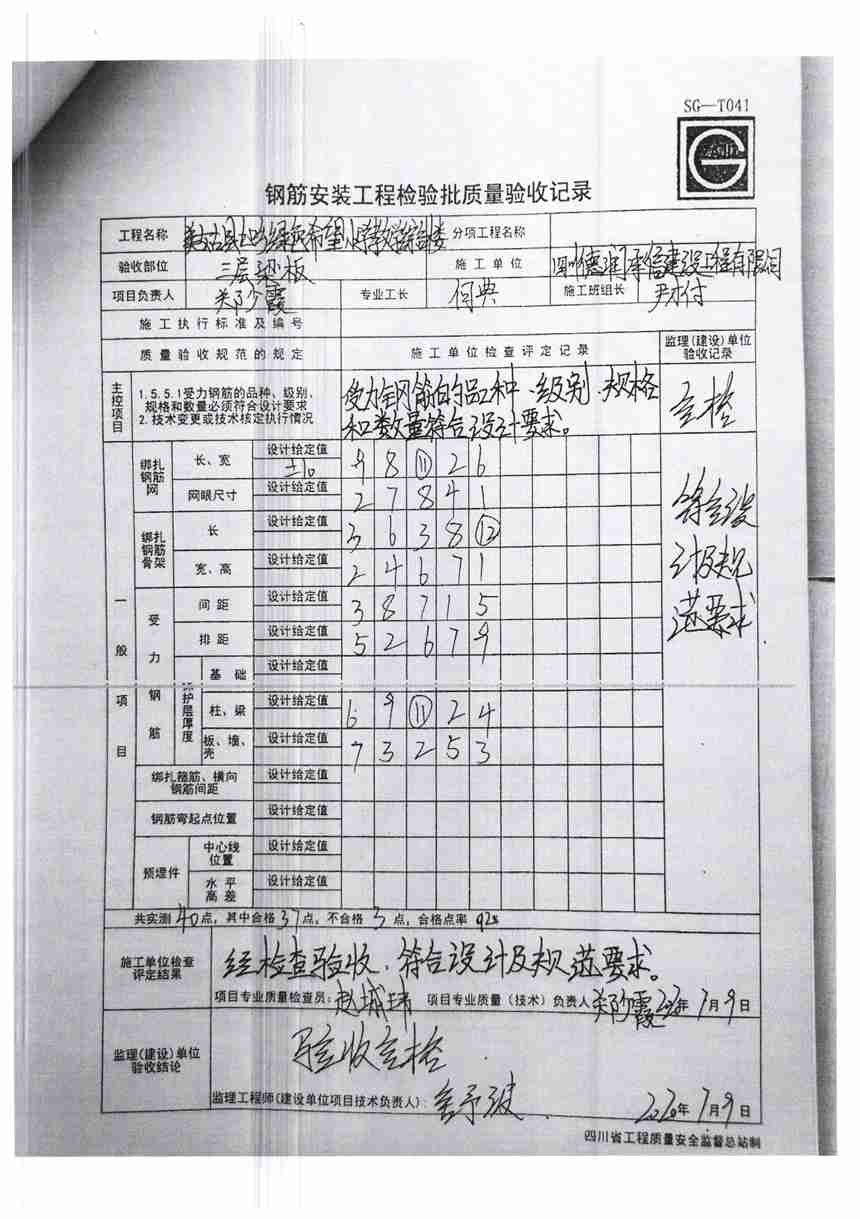 SG—T041
钢筋安装工程检验批质量验收记录
工程名称 希望小学教学综合楼 分项工程名称
验收部位 三层梁板 施工单位 四川德润李信建设工程有限公司
项目负责人 郑珍霞 专业工长 何典 施工班组长 尹才付
施工执行标准及编号
质量验收规范的规定 施工单位检查评定记录 监理(建设)单位验收记录
主控项目 1.5.5.1受力钢筋的品种、级别、 受力钢筋的品种、级别、规格 合格
规格和数量必须符合设计要求 和数量符合设计要求。
2.技术变更或技术核定执行情况
一般项目
绑扎钢筋网 长、宽 设计给定值 ±10 9 8 ⑪ 2 6 符合设计及规范要求
网眼尺寸 设计给定值 2 7 8 4 1
绑扎钢筋骨架 长 设计给定值 3 6 3 8 ⑫
宽、高 设计给定值 2 4 6 7 1
受力钢筋 间距 设计给定值 3 8 7 1 5
排距 设计给定值 5 2 6 7 9
保护层厚度 基础 设计给定值
柱、梁 设计给定值 6 9 ⑪ 2 4
板、墙、壳 设计给定值 7 3 2 5 3
绑扎箍筋、横向钢筋间距 设计给定值
钢筋弯起点位置 设计给定值
预埋件 中心线位置 设计给定值
水平高差 设计给定值
共实测40点，其中合格37点，不合格3点，合格点率92%
施工单位检查评定结果 经检查验收，符合设计及规范要求。
项目专业质量检查员：赵城玮 项目专业质量（技术）负责人 郑珍霞 2020年7月9日
监理(建设)单位验收结论 验收合格
监理工程师(建设单位项目技术负责人)： 2020年7月9日
四川省工程质量安全监督总站制